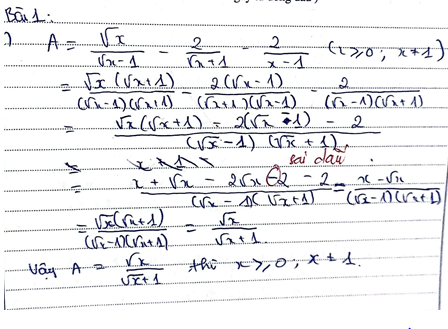 Bài 1:
) A = √x/(√x-1) - 2/(√x+1) - 2/(x-1) (x≥0; x≠1)
= √x(√x+1)/((√x-1)(√x+1)) - 2(√x-1)/((√x+1)(√x-1)) - 2/((√x-1)(√x+1))
= (√x(√x+1) - 2(√x-1) - 2)/((√x-1)(√x+1))
sai dấu
= (x+√x - 2√x - 2 - 2)/((√x-1)(√x+1)) = (x-√x)/((√x-1)(√x+1))
= √x(√x+1)/((√x-1)(√x+1)) = √x/(√x+1)
Vậy A = √x/(√x+1) thì x≥0; x≠1.